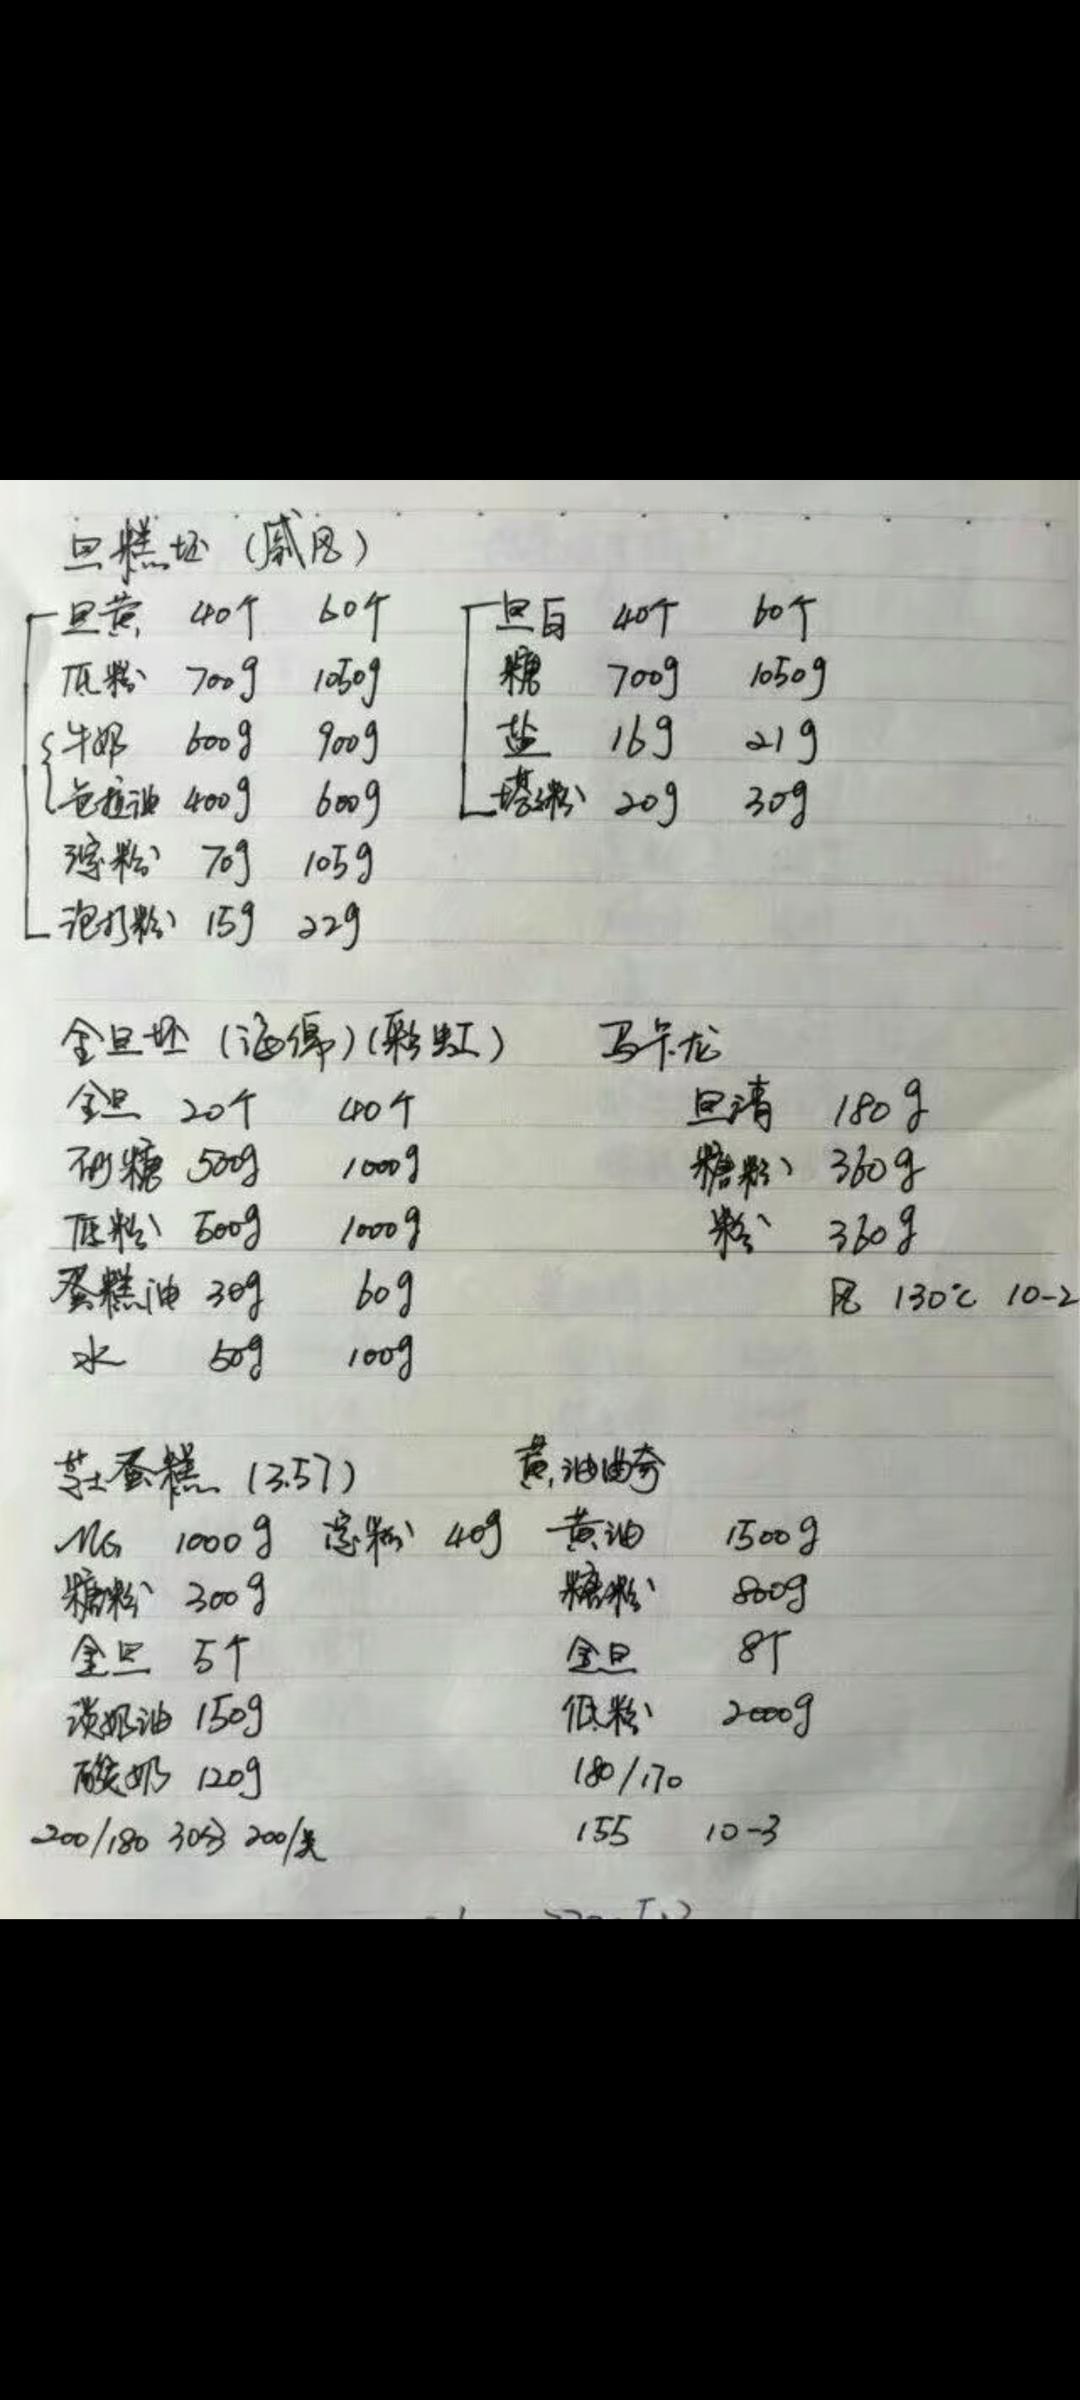 旦糕坯（戚风）
旦黄 40个 60个
低粉 700g 1050g
牛奶 600g 900g
色拉油 400g 600g
淀粉 70g 105g
泡打粉 15g 22g
旦白 40个 60个
糖 700g 1050g
盐 16g 21g
塔塔粉 20g 30g
全旦坯（海绵）（彩虹）
全旦 20个 40个
砂糖 500g 1000g
低粉 500g 1000g
蛋糕油 30g 60g
水 50g 100g
马卡龙
旦清 180g
糖粉 360g
粉 360g
风 130℃ 10-2
芝士蛋糕（3.5寸）
MG 1000g 淀粉 40g
糖粉 300g
全旦 5个
淡奶油 150g
酸奶 120g
200/180 30分 200/关
黄油曲奇
黄油 1500g
糖粉 800g
全旦 8个
低粉 2000g
180/170
155 10-3